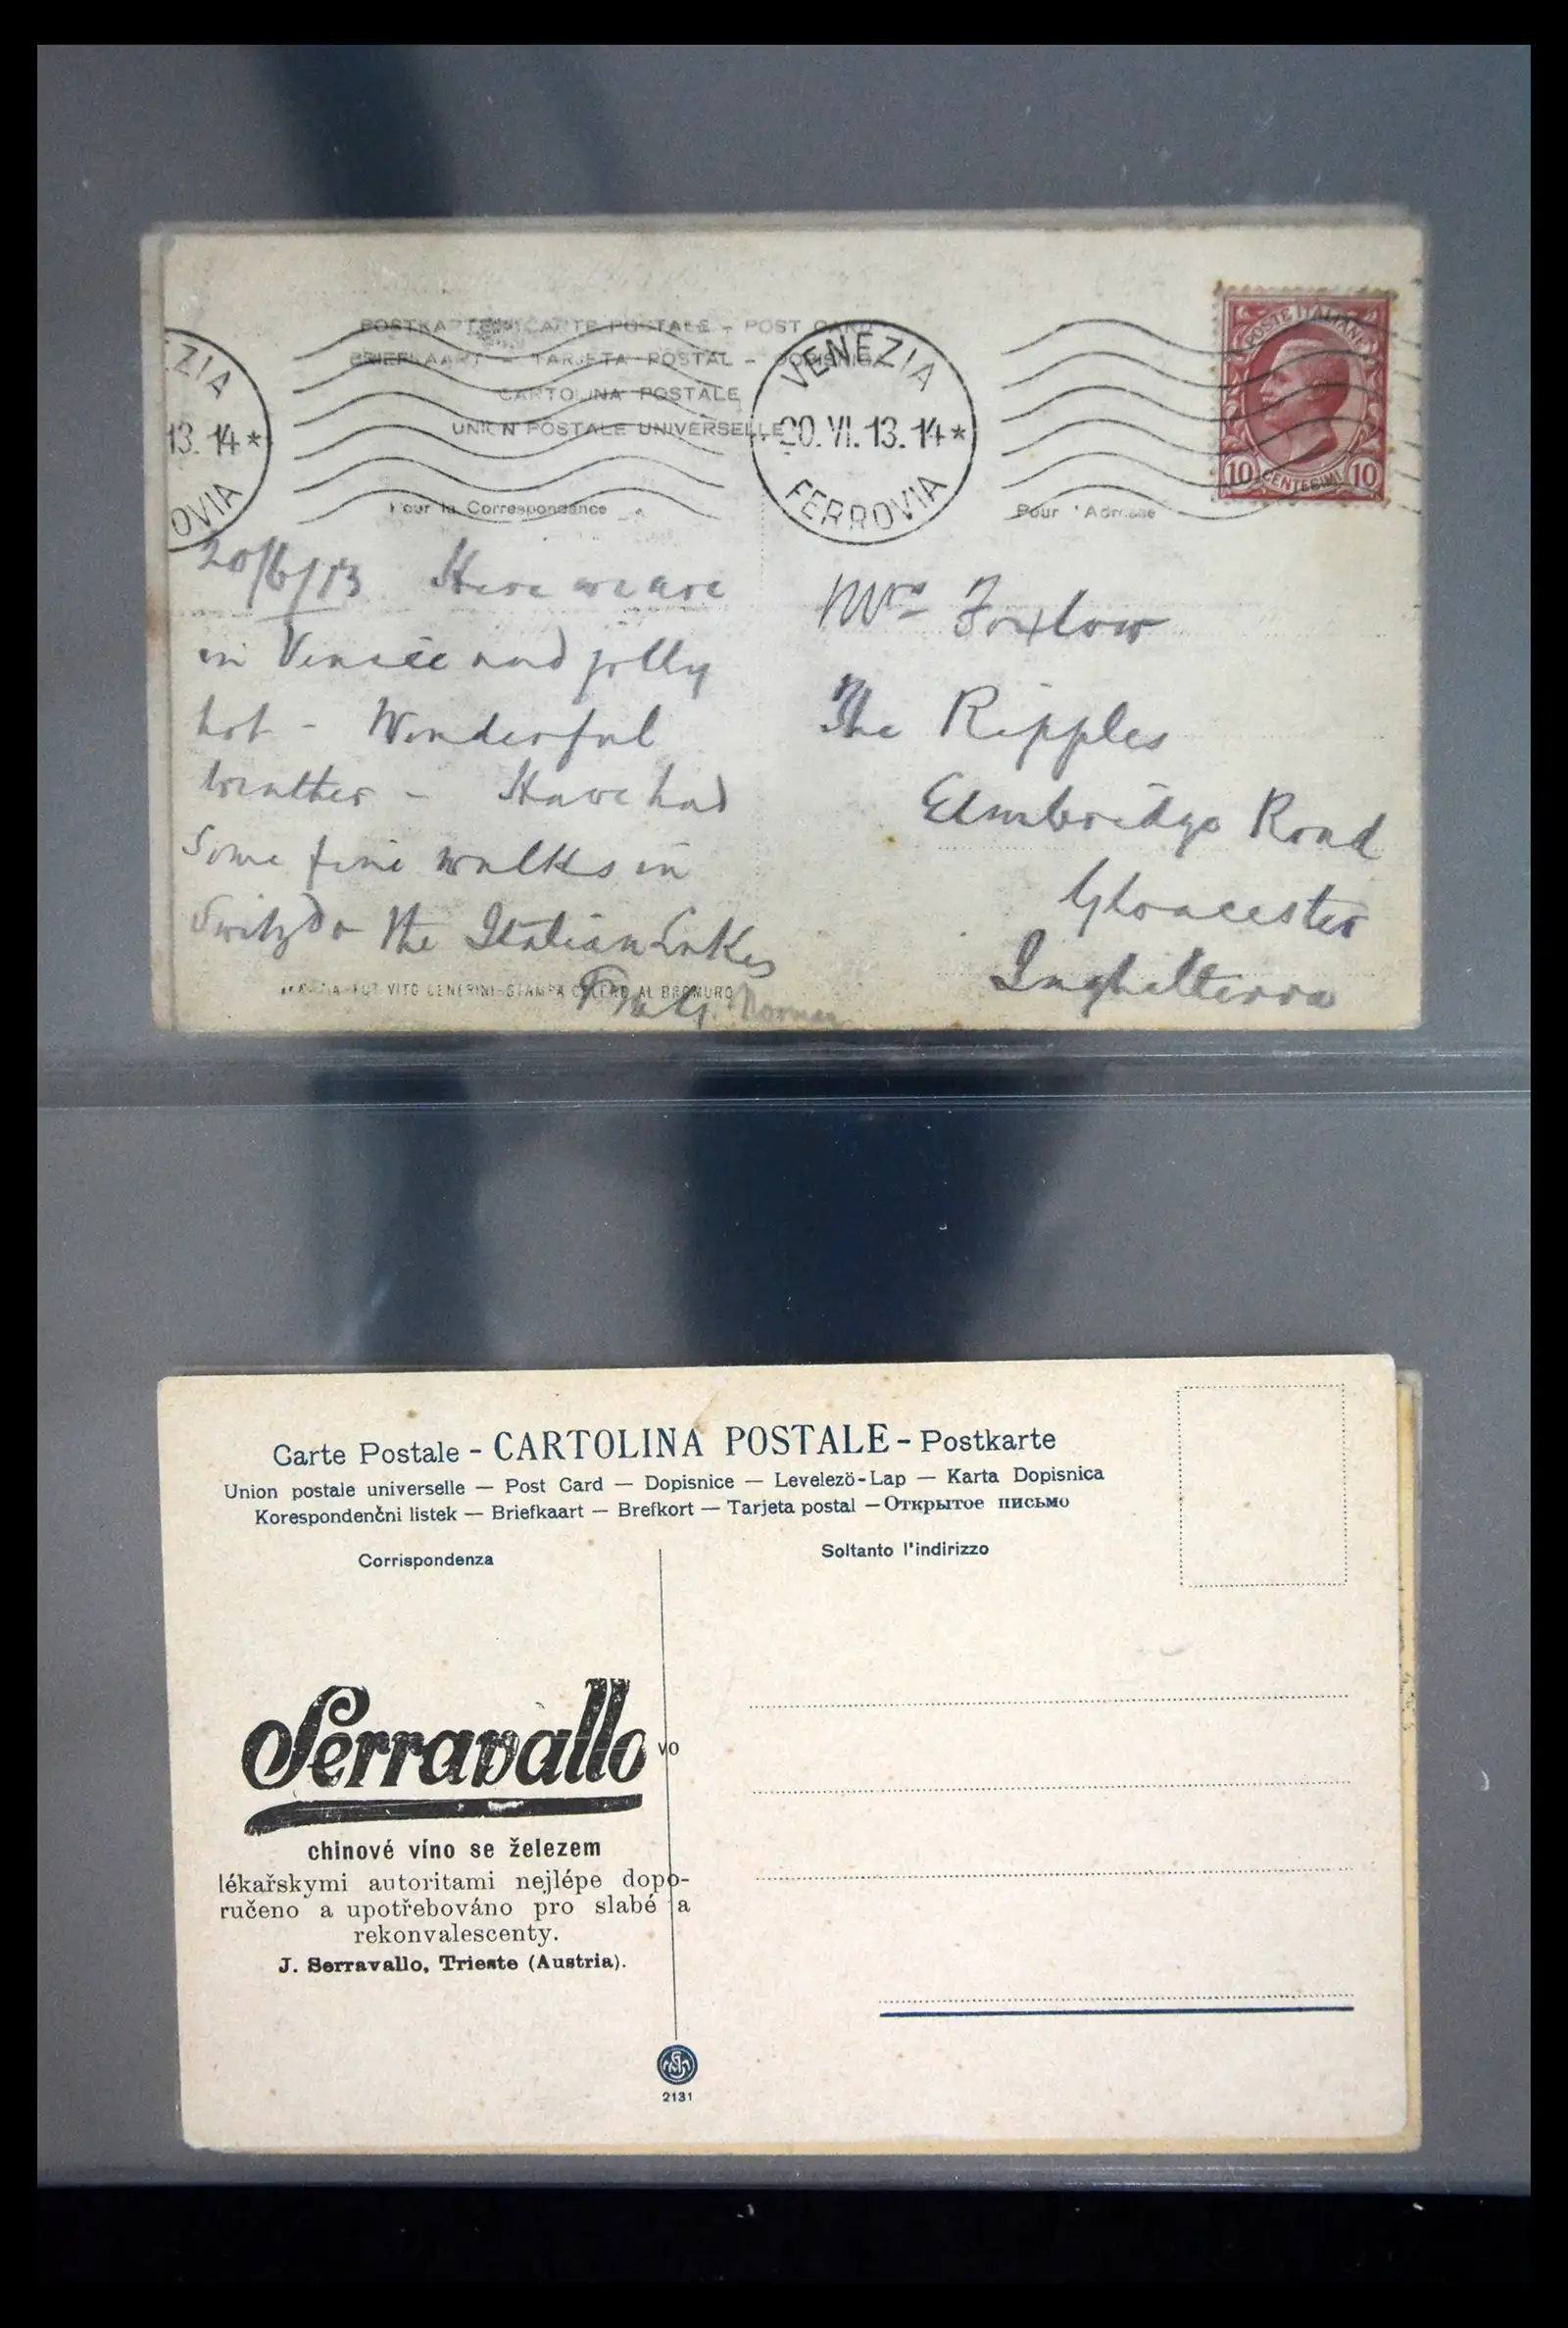 POSTKARTE - CARTE POSTALE - POST CARD
BRIEFKAART - TARJETA POSTAL - DOPISNICA
CARTOLINA POSTALE
UNION POSTALE UNIVERSELLE
ZIA
13.14*
OVIA
VENEZIA
20.VI.13.14*
FERROVIA
POSTE ITALIANE
10 CENTESIMI 10
Pour la Correspondance
Pour l'Adresse
20/6/13 Here we are
in Venice and jolly
hot - Wonderful
weather - Have had
some fine walks in
Switzd & the Italian Lakes
VITO STAMPA AL BROMURO
Norman
Mrs Foxlow
The Ripples
Elmbridge Road
Gloucester
Inghilterra
Carte Postale - CARTOLINA POSTALE - Postkarte
Union postale universelle — Post Card — Dopisnice — Levelezö-Lap — Karta Dopisnica
Korespondenčni listek — Briefkaart — Brefkort — Tarjeta postal — Открытое письмо
Corrispondenza
Soltanto l'indirizzo
Serravallo
vo
chinové víno se železem
lékařskymi autoritami nejlépe dopo-
ručeno a upotřebováno pro slabé a
rekonvalescenty.
J. Serravallo, Trieste (Austria).
2131